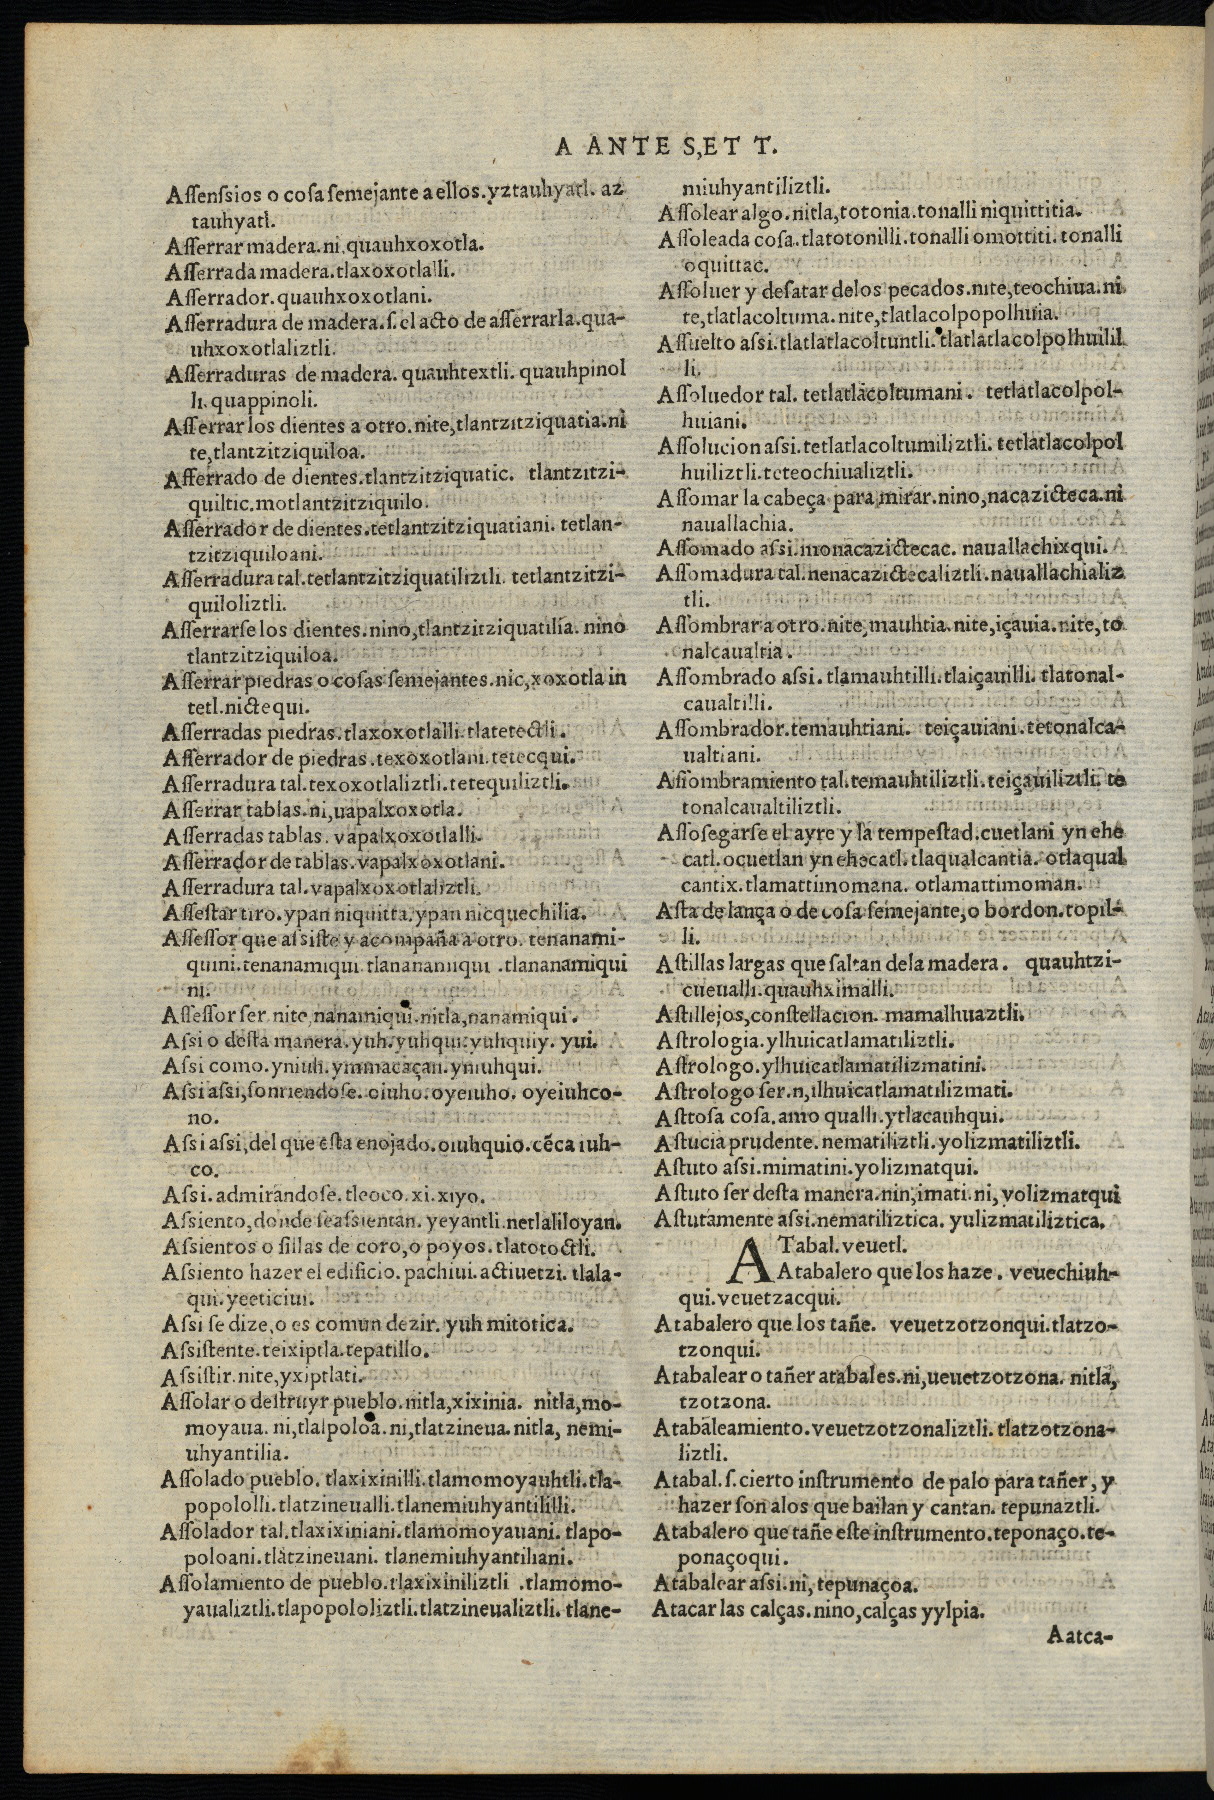 A ANTE S,ET T.
Aſſenſsios o coſa ſemejante a ellos.yztauhyatl. az
tauhyatl.
Aſſerrar madera.ni,quauhxoxotla.
Aſſerrada madera.tlaxoxotlalli.
Aſſerrador.quauhxoxotlani.
Aſſerradura de madera.ſ.el acto de aſſerrarla.qua-
uhxoxotlaliztli.
Aſſerraduras de madera. quauhtextli. quauhpinol
li.quappinoli.
Aſſerrar los dientes a otro.nite,tlantzitziquatia.ni
te,tlantzitziquiloa.
Aſſerrado de dientes.tlantzitziquatic. tlantzitzi-
quiltic.motlantzitziquilo.
Aſſerrador de dientes.tetlantzitziquatiani. tetlan-
tzitziquiloani.
Aſſerradura tal.tetlantzitziquatiliztli. tetlantzitzi-
quiloliztli.
Aſſerrarſe los dientes.nino,tlantzitziquatilia. nino
tlantzitziquiloa.
Aſſerrar piedras o coſas ſemejantes.nic,xoxotla in
tetl.nictequi.
Aſſerradas piedras.tlaxoxotlalli.tlatetectli.
Aſſerrador de piedras.texoxotlani.tetecqui.
Aſſerradura tal.texoxotlaliztli.tetequiliztli.
Aſſerrar tablas.ni,uapalxoxotla.
Aſſerradas tablas. vapalxoxotlalli.
Aſſerrador de tablas.vapalxoxotlani.
Aſſerradura tal.vapalxoxotlaliztli.
Aſſeſtar tiro.ypan niquitta.ypan nicquechilia.
Aſſeſſor que aſsiſte y acompaña a otro. tenanami-
quini.tenanamiqui.tlananamiqui .tlananamiqui
ni.
Aſſeſſor ſer.nite,nanamiqui.nitla,nanamiqui.
Aſsi o deſta manera.yuh.yuhqui.yuhquiy. yui.
Aſsi como.yniuh.ynmacaçan.yniuhqui.
Aſsi aſsi,ſonriendoſe. oiuho.oyeiuho. oyeiuhco-
no.
Aſsi aſsi,del que eſta enojado.oiuhquio.cēca iuh-
co.
Aſsi.admirandoſe.tleoco.xi.xiyo.
Aſsiento,donde ſe aſsientan. yeyantli.netlaliloyan.
Aſsientos o ſillas de coro,o poyos.tlatotoctli.
Aſsiento hazer el edificio.pachiui.actiuetzi. tlala-
qui.yeeticiui.
Aſsi ſe dize,o es comun dezir. yuh mitotica.
Aſsiſtente.teixiptla.tepatillo.
Aſsiſtir.nite,yxiptlati.
Aſſolar o deſtruyr pueblo.nitla,xixinia. nitla,mo-
moyaua. ni,tlalpoloa.ni,tlatzineua.nitla, nemi-
uhyantilia.
Aſſolado pueblo. tlaxixinilli.tlamomoyauhtli.tla-
popololli.tlatzineualli.tlanemiuhyantililli.
Aſſolador tal.tlaxixiniani.tlamomoyauani. tlapo-
poloani.tlatzineuani. tlanemiuhyantiliani.
Aſſolamiento de pueblo.tlaxixiniliztli .tlamomo-
yaualiztli.tlapopololiztli.tlatzineualiztli. tlane-
miuhyantiliztli.
Aſſolear algo.nitla,totonia.tonalli niquittitia.
Aſſoleada coſa.tlatotonilli.tonalli omottiti.tonalli
oquittac.
Aſſoluer y deſatar delos pecados.nite,teochiua.ni
te,tlatlacoltuma.nite,tlatlacolpopolhuia.
Aſſuelto aſsi.tlatlatlacoltuntli.tlatlatlacolpolhuilil
li.
Aſſoluedor tal. tetlatlacoltumani. tetlatlacolpol-
huiani.
Aſſolucion aſsi.tetlatlacoltumiliztli. tetlatlacolpol
huiliztli.teteochiualiztli.
Aſſomar la cabeça para mirar.nino,nacazicteca.ni
nauallachia.
Aſſomado aſsi.monacazictecac. nauallachixqui.
Aſſomadura tal.nenacazictecaliztli.nauallachializ
tli.
Aſſombrar a otro.nite,mauhtia.nite,içauia.nite,to
nalcaualtia.
Aſſombrado aſsi. tlamauhtilli.tlaiçauilli. tlatonal-
caualtilli.
Aſſombrador.temauhtiani. teiçauiani.tetonalca-
ualtiani.
Aſſombramiento tal.temauhtiliztli.teiçauiliztli. te
tonalcaualtiliztli.
Aſſoſegarſe el ayre y la tempeſtad.cuetlani yn ehe
catl.ocuetlan yn ehecatl.tlaqualcantia. otlaqual
cantix.tlamattimomana. otlamattimoman.
Aſta de lança o de coſa ſemejante,o bordon.topil-
li.
Aſtillas largas que ſaltan dela madera. quauhtzi-
cueualli.quauhximalli.
Aſtillejos,conſtellacion. mamalhuaztli.
Aſtrologia.ylhuicatlamatiliztli.
Aſtrologo.ylhuicatlamatilizmatini.
Aſtrologo ſer.n,ilhuicatlamatilizmati.
Aſtroſa coſa.amo qualli.ytlacauhqui.
Aſtucia prudente.nematiliztli.yolizmatiliztli.
Aſtuto aſsi.mimatini.yolizmatqui.
Aſtuto ſer deſta manera.nin,imati.ni,yolizmatqui
Aſtutamente aſsi.nematiliztica. yulizmatiliztica.
ATabal.veuetl.
Atabalero que los haze. veuechiuh-
qui.veuetzacqui.
Atabalero que los tañe. veuetzotzonqui.tlatzo-
tzonqui.
Atabalear o tañer atabales.ni,ueuetzotzona. nitla,
tzotzona.
Atabaleamiento.veuetzotzonaliztli.tlatzotzona-
liztli.
Atabal.ſ.cierto inſtrumento de palo para tañer, y
hazer ſon alos que bailan y cantan. tepunaztli.
Atabalero que tañe eſte inſtrumento.teponaço.te-
ponaçoqui.
Atabalear aſsi.ni,tepunaçoa.
Atacar las calças.nino,calças yylpia.
Aatca-